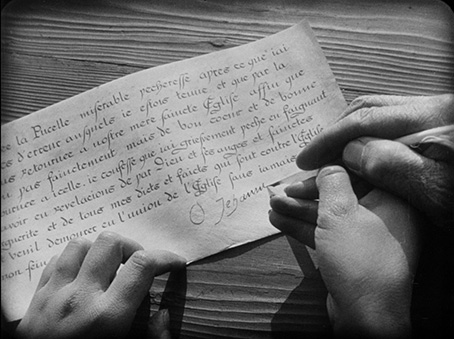 la Pucelle miserable pecheresse apres ce que iai
s d'erreur ausquels ie estois tenue et que par la
is retournee a nostre mere saincte Eglise affin que
pas fainctement mais de bon coeur et de bonne
tournee a icelle, ie confesse que iai griefvement peche en faignant
avoir eu revelacions de par Dieu et ses anges et sainctes
guerite et de tous mes dicts et faicts qui sont contre l'Eglise
t veuil demourer en l'union de l'Eglise sans iamais
Jehann